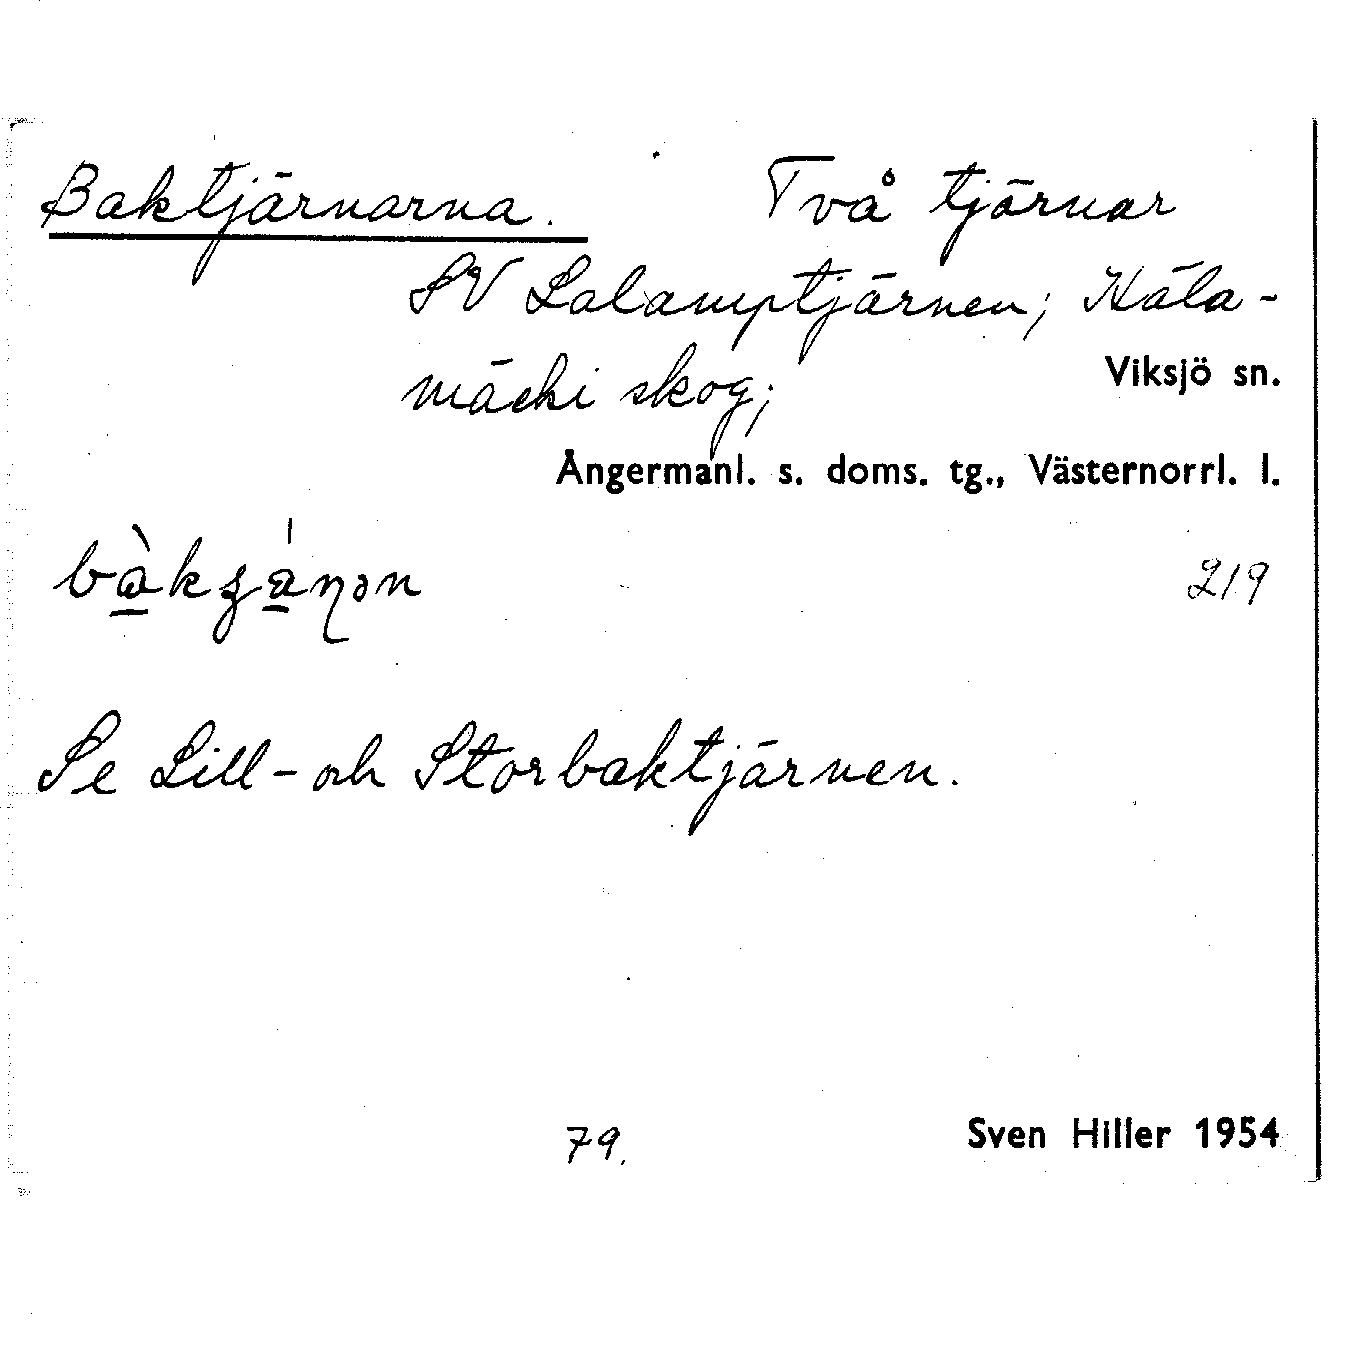 Baktjärnarna. Två tjärnar
SV Lalamptjärnen; Käla-
mäcki skog; Viksjö sn.
Ångermanl. s. doms. tg., Västernorrl. l.
219
Se Lill- och Storbaktjärnen.
79. Sven Hiller 1954